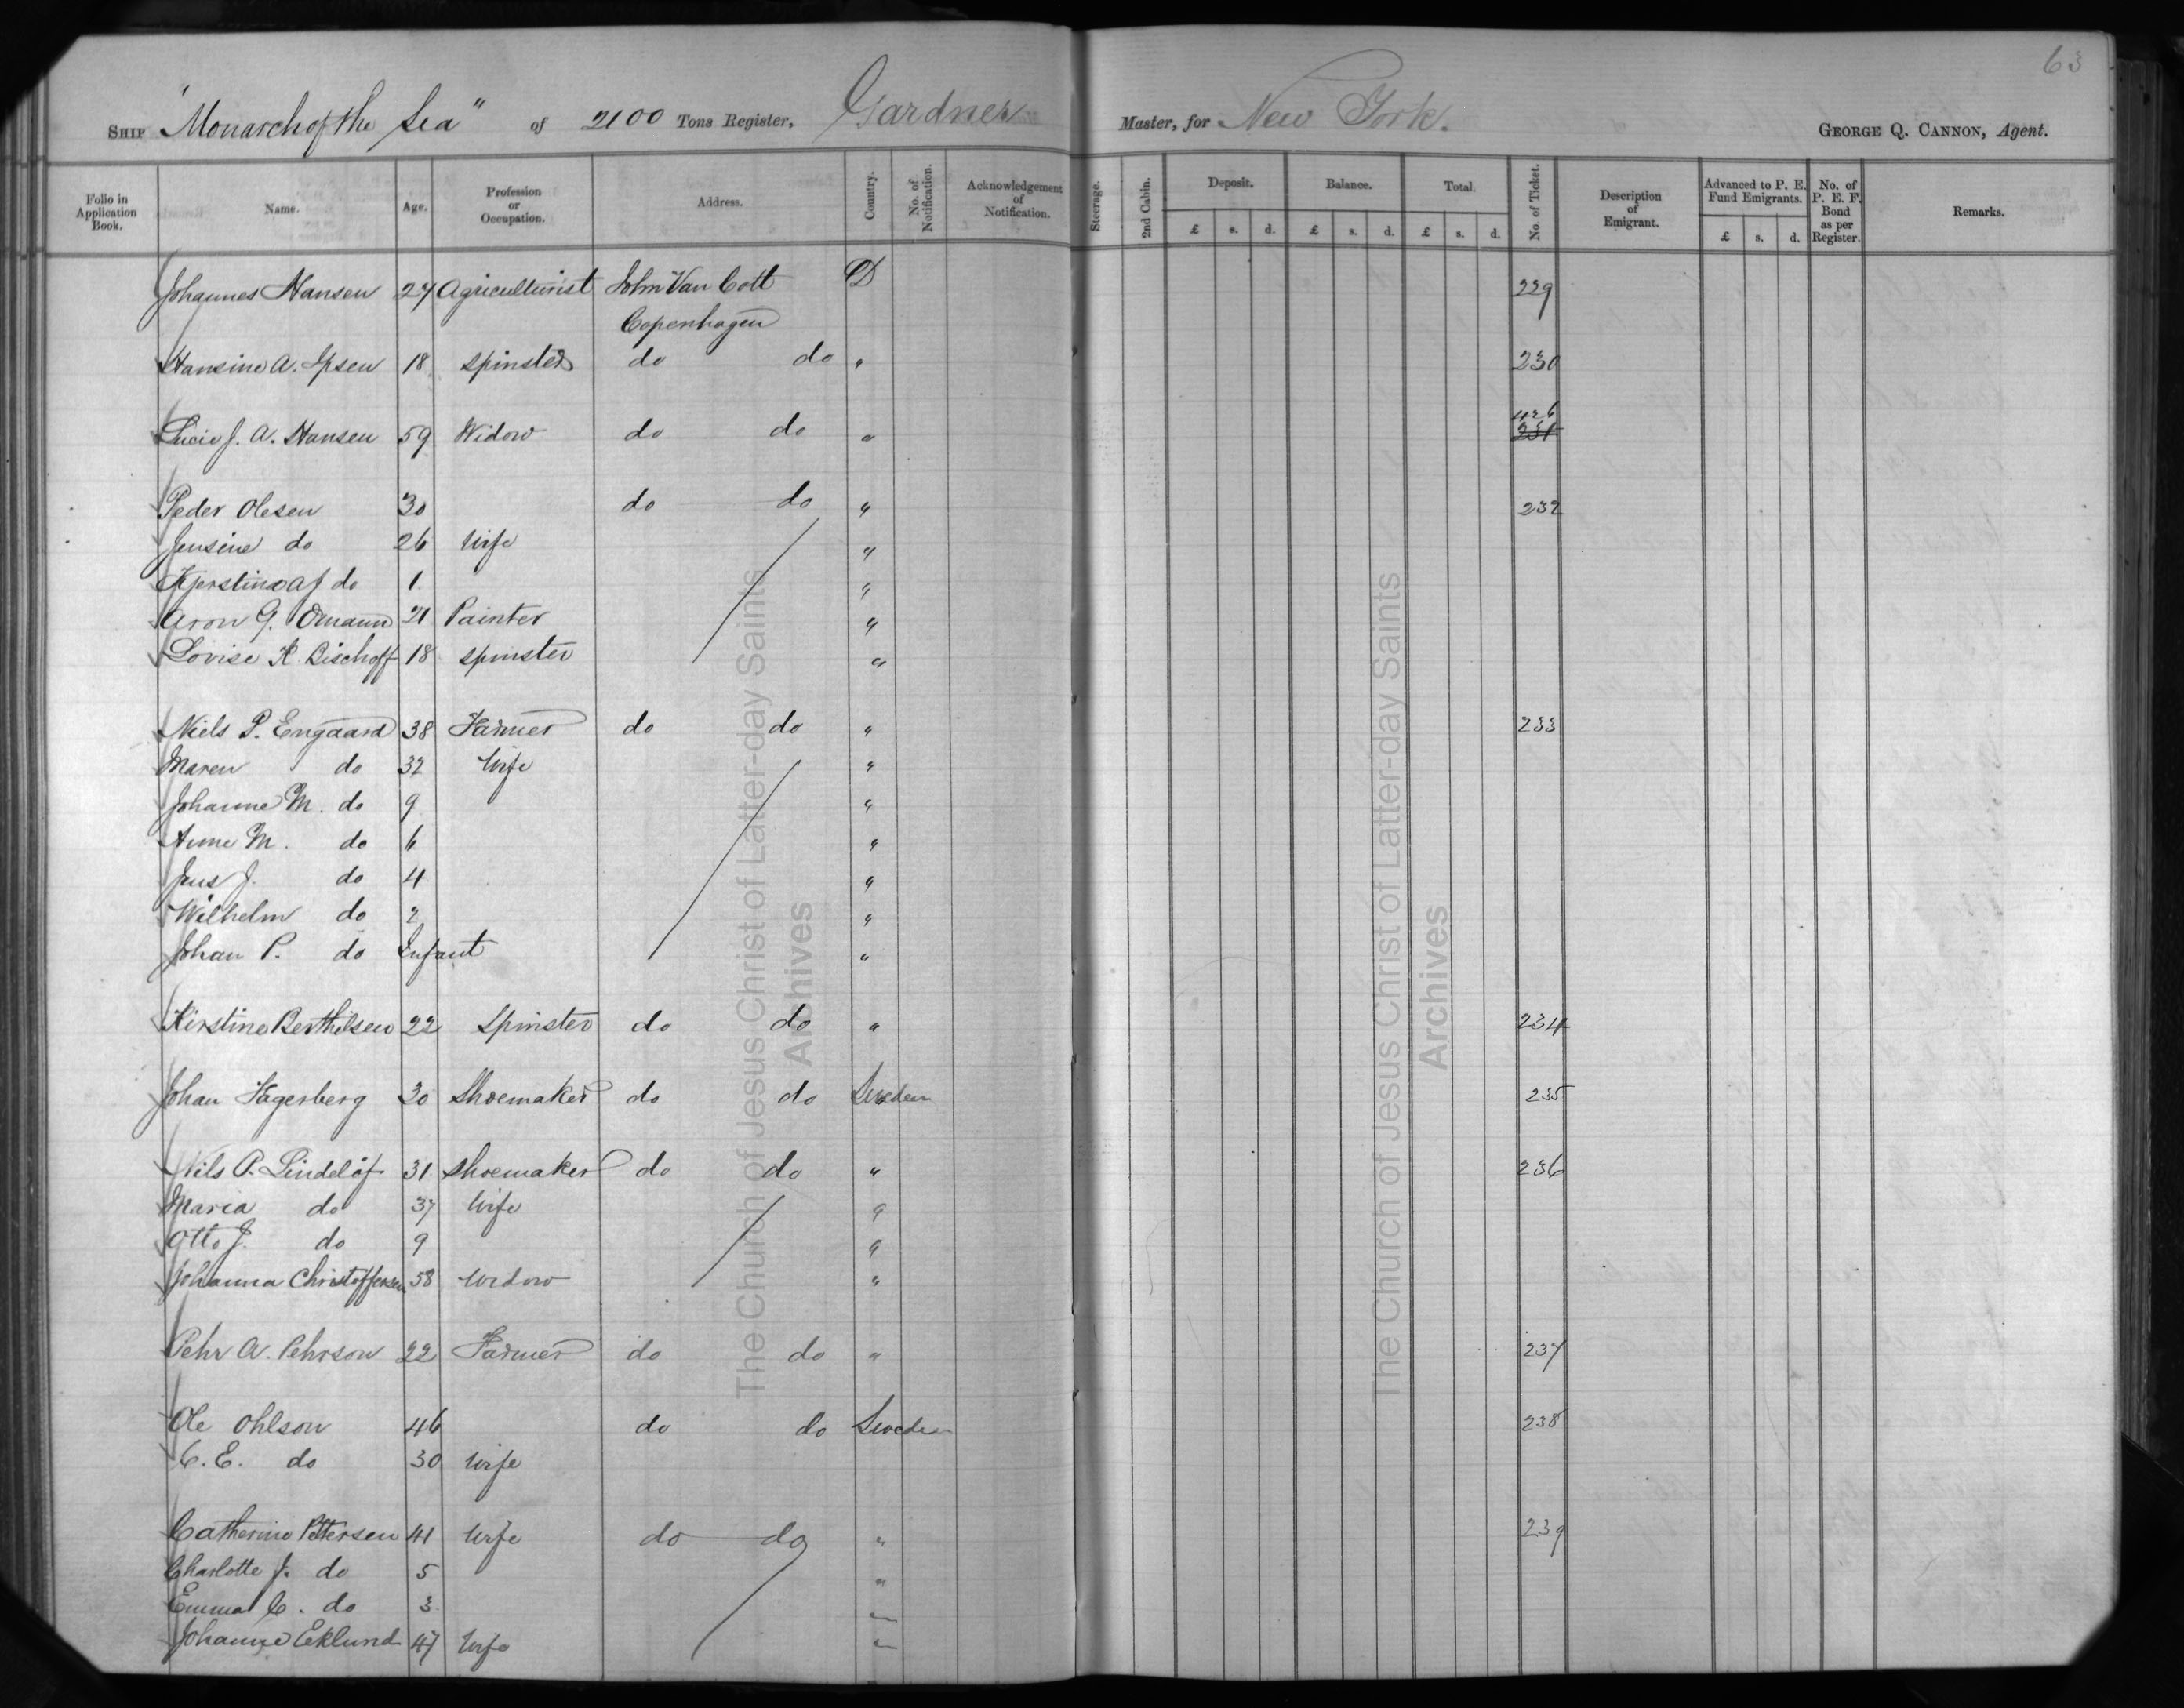 63
SHIP "Monarch of the Sea" of 2100 Tons Register, Gardner Master, for New York. GEORGE Q. CANNON, Agent.
Folio in Application Book. Name. Age. Profession or Occupation. Address. Country. No. of Notification. Acknowledgement of Notification. Steerage. 2nd Cabin. Deposit. £ s. d. Balance. £ s. d. Total. £ s. d. No. of Ticket. Description of Emigrant. Advanced to P. E. Fund Emigrants. £ s. d. No. of P. E. F. Bond as per Register. Remarks.
Johannes Hansen 27 Agriculturist John Van Cott D 229
Copenhagen
Hansine A. Ipsen 18 Spinster do do " 230
426
Lucie J. A. Hansen 59 Widow do do " 231
Peder Olesen 30 do do " 232
Jensine do 26 Wife "
Kjerstine A J do 1 "
Aron G. Omann 21 Painter "
Lovise K. Bischoff 18 spinster "
Niels P. Engaard 38 Farmer do do " 233
Maren do 32 Wife "
Johanne M. do 9 "
Anne M. do 6 "
Jens J. do 4 "
Wilhelm do 2 "
Johan P. do Infant "
Kirstine Berthelsen 22 Spinster do do " 234
Johan Fagerberg 30 Shoemaker do do Sweden 235
Nils P. Lindelöf 31 Shoemaker do do " 236
Maria do 37 Wife "
Otto J. do 9 "
Johanna Christoffersen 58 Widow "
Pehr A. Pehrson 22 Farmer do do " 237
Ole Ohlson 46 do do Sweden 238
C. E. do 30 Wife
Catherine Pettersen 41 Wife do do " 239
Charlotte J. do 5 "
Emma C. do 3 "
Johanne Eklund 47 Wife "
The Church of Jesus Christ of Latter-day Saints
Archives
The Church of Jesus Christ of Latter-day Saints
Archives